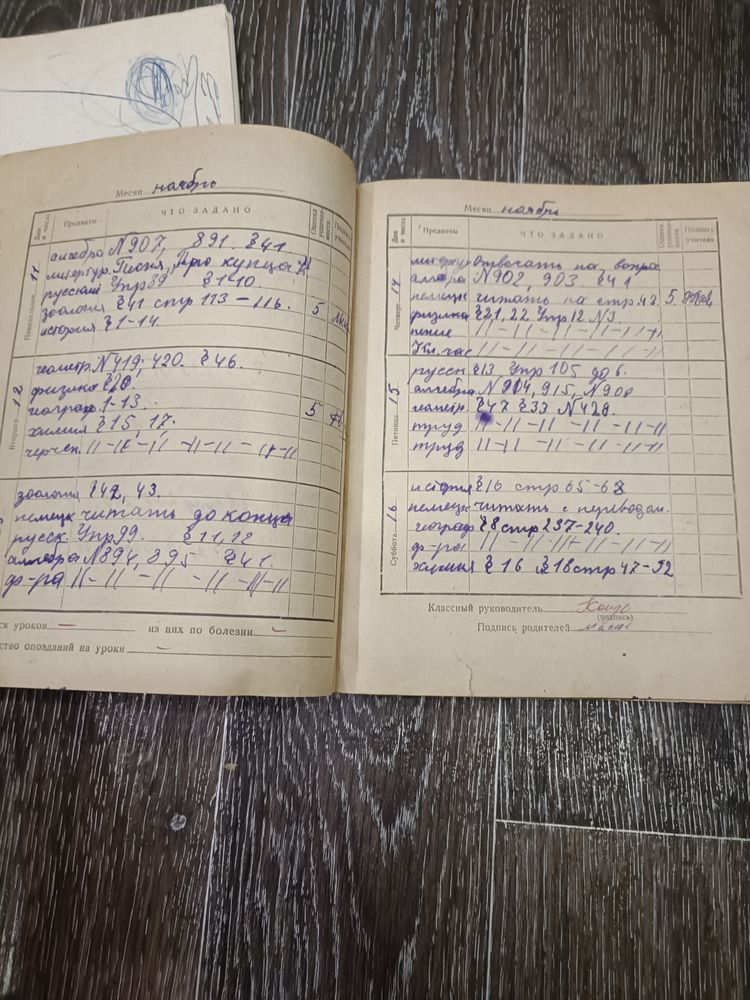 Месяц ноябрь
Дни и числа Предметы ЧТО ЗАДАНО Оценка успевае-мости Подпись учителя
Понедельник 11
алгебра N907, 891. §41
литерат. Песня „Про купца К
русский Упр 89 §1-10.
зоология §41 стр 113-116. 5
история §1-14.
Вторник 12
геометр. N419; 420. §46.
физика §20.
географ. 1-13. 5
химия §15, 17.
черчен. 11-11-11-11-11-11-11
зоология §42, 43.
немецк читать до конца
русск. Упр 99. §11, 12
алгебра N894, 895 §41.
ф-ра 11-11-11-11-11-11
ск уроков — из них по болезни
ство опозданий на уроки —
Месяц ноябрь
Дни и числа Предметы ЧТО ЗАДАНО Оценка успевае-мости Подпись учителя
Четверг 14
литер отвечать на вопро
алгебра N902, 903. §41
немецк читать на стр 48. 5
физика §21, 22. Упр 12 N3.
пение 11-11-11-11-11-11
Кл. час 11-11-11-11-11-11
Пятница 15
русск §13 Упр 105 до в.
алгебра N904, 915, N908
геометр §47 §33 N428.
труд 11-11-11-11-11-11
труд 11-11-11-11-11-11
Суббота 16
история §16 стр 65-68
немецк читать с переводом.
географ §8 стр 237-240.
ф-ра 11-11-11-11-11-11
химия §16 §18 стр 47-52
Классный руководитель
(подпись)
Подпись родителей